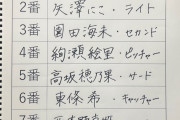 2番 矢澤にこ・ライト
3番 園田海未・セカンド
4番 絢瀬絵里・ピッチャー
5番 高坂穂乃果・サード
6番 東條希・キャッチャー